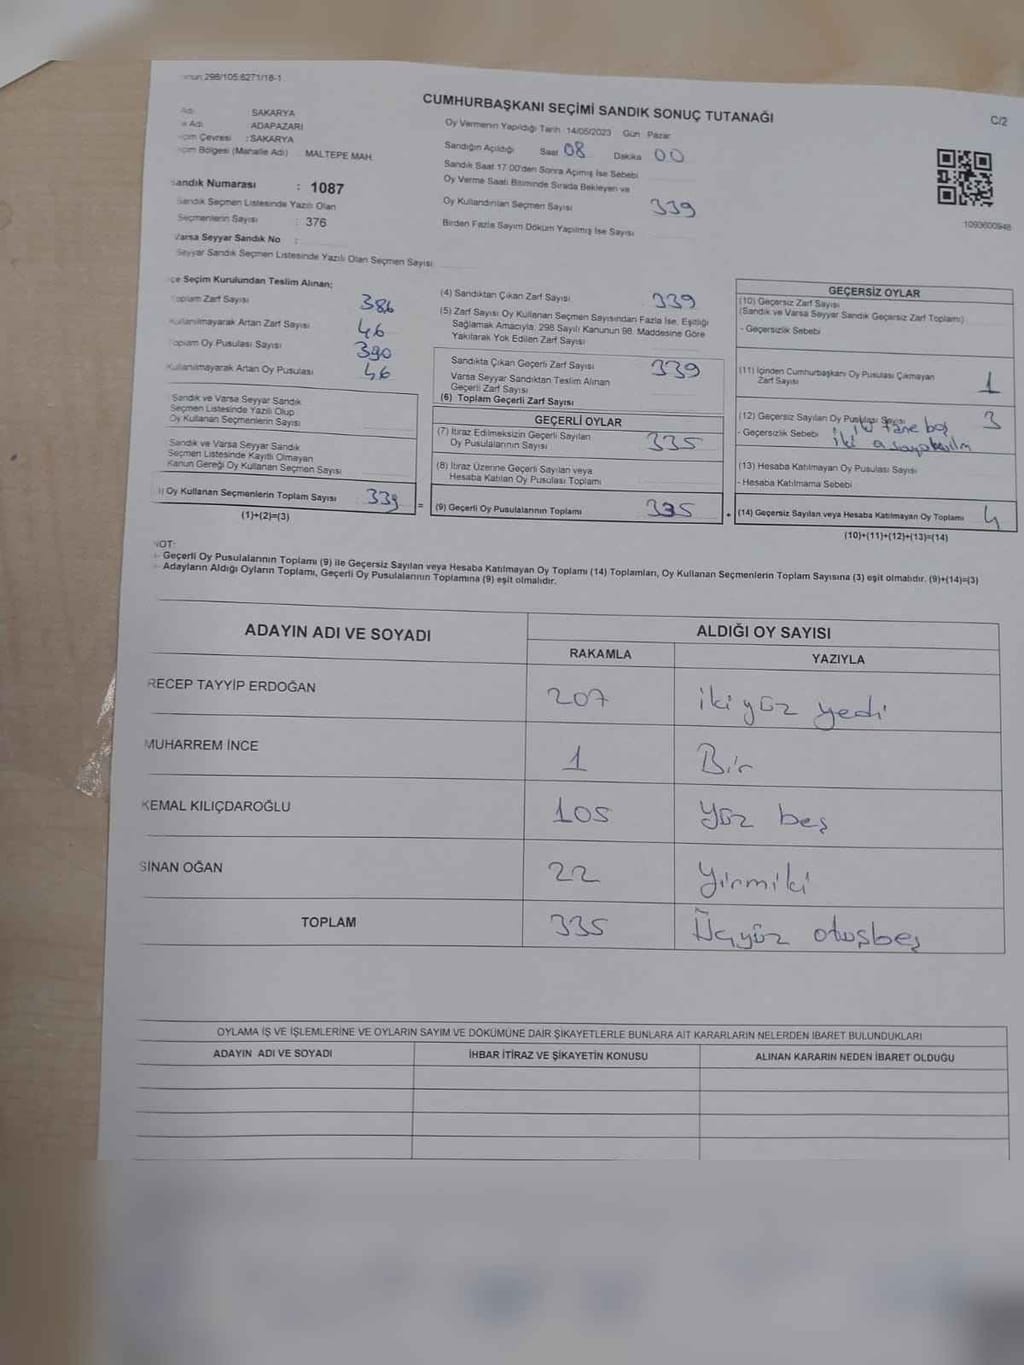 298/105:6271/18-1
CUMHURBAŞKANI SEÇİMİ SANDIK SONUÇ TUTANAĞI
C/2
Adı : SAKARYA
Adı : ADAPAZARI
Çevresi : SAKARYA
Bölgesi (Mahalle Adı) : MALTEPE MAH.
Sandık Numarası : 1087
Sandık Seçmen Listesinde Yazılı Olan
Seçmenlerin Sayısı : 376
Varsa Seyyar Sandık No :
Seyyar Sandık Seçmen Listesinde Yazılı Olan Seçmen Sayısı:
Oy Vermenin Yapıldığı Tarih :14/05/2023 Gün : Pazar
Sandığın Açıldığı Saat 08 Dakika 00
Sandık Saat 17:00'den Sonra Açımış İse Sebebi
Oy Verme Saati Bitiminde Sırada Bekleyen ve
Oy Kullandırılan Seçmen Sayısı 339
Birden Fazla Sayım Döküm Yapılmış İse Sayısı
1093600948
Seçim Kurulundan Teslim Alınan;
Toplam Zarf Sayısı 386
Kullanılmayarak Artan Zarf Sayısı 46
Toplam Oy Pusulası Sayısı 390
Kullanılmayarak Artan Oy Pusulası 46
Sandık ve Varsa Seyyar Sandık
Seçmen Listesinde Yazılı Olup
Oy Kullanan Seçmenlerin Sayısı
Sandık ve Varsa Seyyar Sandık
Seçmen Listesinde Kayıtlı Olmayan
Kanun Gereği Oy Kullanan Seçmen Sayısı
Oy Kullanan Seçmenlerin Toplam Sayısı 339 =
(1)+(2)=(3)
(4) Sandıktan Çıkan Zarf Sayısı 339
(5) Zarf Sayısı Oy Kullanan Seçmen Sayısından Fazla İse, Eşitliği
Sağlamak Amacıyla; 298 Sayılı Kanunun 98. Maddesine Göre
Yakılarak Yok Edilen Zarf Sayısı
Sandıkta Çıkan Geçerli Zarf Sayısı 339
Varsa Seyyar Sandıktan Teslim Alınan
Geçerli Zarf Sayısı
(6) Toplam Geçerli Zarf Sayısı
GEÇERLİ OYLAR
(7) İtiraz Edilmeksizin Geçerli Sayılan
Oy Pusulalarının Sayısı 335
(8) İtiraz Üzerine Geçerli Sayılan veya
Hesaba Katılan Oy Pusulası Toplamı
(9) Geçerli Oy Pusulalarının Toplamı 335 +
GEÇERSİZ OYLAR
(10) Geçersiz Zarf Sayısı
(Sandık ve Varsa Seyyar Sandık Geçersiz Zarf Toplamı)
- Geçersizlik Sebebi
(11) İçinden Cumhurbaşkanı Oy Pusulası Çıkmayan
Zarf Sayısı 1
(12) Geçersiz Sayılan Oy Pusulası Sayısı 3
- Geçersizlik Sebebi iki tane boş
iki
(13) Hesaba Katılmayan Oy Pusulası Sayısı
- Hesaba Katılmama Sebebi
(14) Geçersiz Sayılan veya Hesaba Katılmayan Oy Toplamı 4
(10)+(11)+(12)+(13)=(14)
NOT:
- Geçerli Oy Pusulalarının Toplamı (9) ile Geçersiz Sayılan veya Hesaba Katılmayan Oy Toplamı (14) Toplamları, Oy Kullanan Seçmenlerin Toplam Sayısına (3) eşit olmalıdır. (9)+(14)=(3)
- Adayların Aldığı Oyların Toplamı, Geçerli Oy Pusulalarının Toplamına (9) eşit olmalıdır.
ADAYIN ADI VE SOYADI
ALDIĞI OY SAYISI
RAKAMLA YAZIYLA
RECEP TAYYİP ERDOĞAN 207 iki yüz yedi
MUHARREM İNCE 1 Bir
KEMAL KILIÇDAROĞLU 105 yüz beş
SİNAN OĞAN 22 yirmiki
TOPLAM 335 Üçyüz otuşbeş
OYLAMA İŞ VE İŞLEMLERİNE VE OYLARIN SAYIM VE DÖKÜMÜNE DAİR ŞİKAYETLERLE BUNLARA AİT KARARLARIN NELERDEN İBARET BULUNDUKLARI
ADAYIN ADI VE SOYADI İHBAR İTİRAZ VE ŞİKAYETİN KONUSU ALINAN KARARIN NEDEN İBARET OLDUĞU